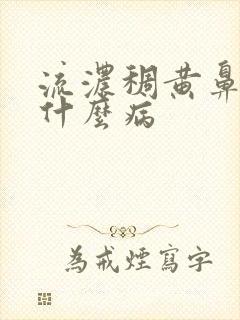 流濃稠黃鼻
什麼病
為戒煙寫字